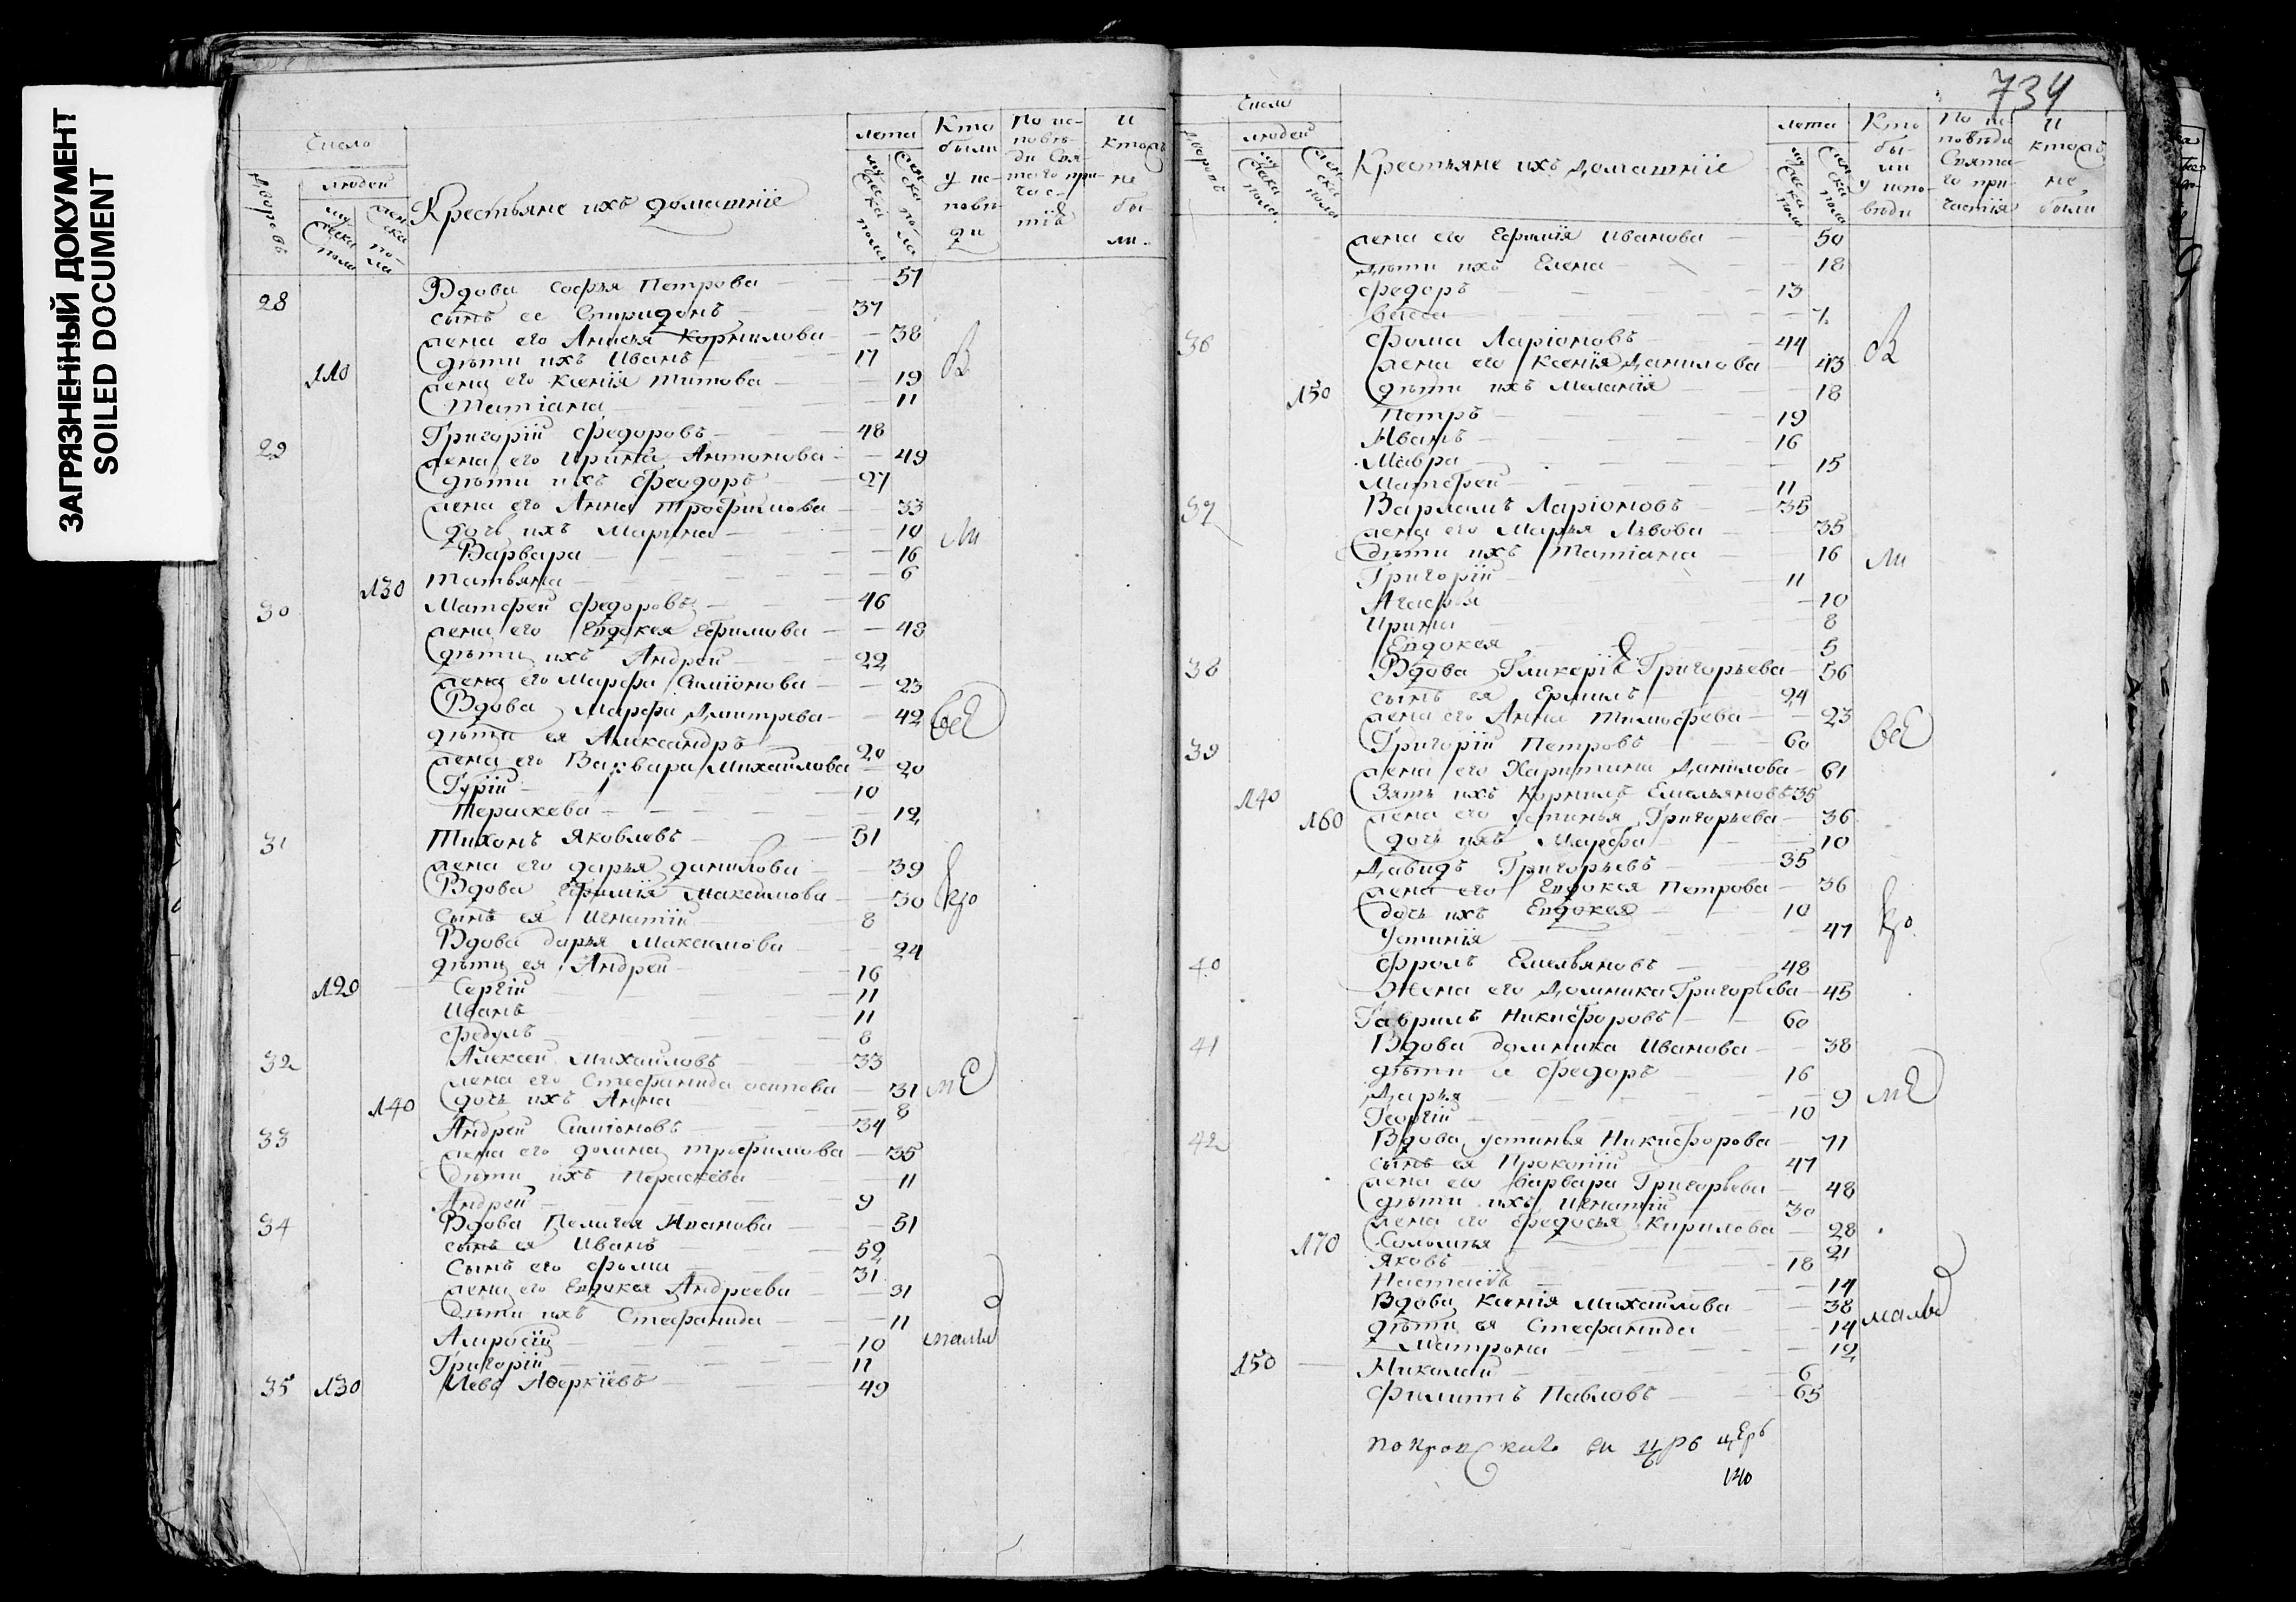 ЗАГРЯЗНЕННЫЙ ДОКУМЕНТ
SOILED DOCUMENT
Число
дворовъ
людей
мужеска пола
женска пола
Крестьяне ихъ домашніе
лета
мужеска пола
женска пола
Кто были у исповѣди
По исповѣди Святаго причастія
И кто не были
28 Вдова Софья Петрова 57
сынъ ее Спиридонъ 37
жена его Анисья Корнилова 38
дѣти ихъ Иванъ 17
110 жена его Ксенія Титова 19
Татіана 11
Григорій Федоровъ 48
29 жена его Ирина Антонова 49
дѣти ихъ Феодоръ 27
жена его Анна Трофимова 33
дочь ихъ Марина 10
Варвара 16
130 Татьяна 6
30 Матфей Федоровъ 46
жена его Евдокея Ефимова 48
дѣти ихъ Андрей 22
жена его Марфа Симіонова 23
Вдова Марфа Дмитрева 42
дѣти ея Александръ 20
жена его Варвара Михаилова 20
Гурій 10
Пераскева 12
31 Тихонъ Яковлевъ 51
жена его дарья данилова 39
Вдова Ефимія Максимова 30
Сынъ ея Игнатій 8
Вдова дарья Максимова 24
дѣти ея Андрей 16
120 Сергій 11
Иванъ 11
Федулъ 8
32 Алексей Михаиловъ 33
жена его Стефанида осипова 31
140 дочь ихъ Анна 8
33 Андрей Симіоновъ 34
жена его домна трофимова 35
дѣти ихъ Пераскева 11
Андрей 9
34 Вдова Пелагея Иванова 51
сынъ ея Иванъ 52
Сынъ его Фома 31
жена его Евдокея Андреева 31
дѣти ихъ Стефанида 11
Амросій 10
Григорій 11
35 130 Левъ Аверкіевъ 49
В
ли
всѣ
кро
мѣ
малы
734
Число
дворовъ
людей
мужеска пола
женска пола
Крестьяне ихъ домашніе
лета
мужеска пола
женска пола
Кто были у исповѣди
По исповѣди Святаго причастія
И кто не были
жена его Ефимія Иванова 50
дѣти ихъ Елена 18
Федоръ 13
Васса 7
36 Фома Ларіоновъ 44
жена его Ксенія Данилова 43
150 дѣти ихъ Меланія 18
Петръ 19
Иванъ 16
Мавра 15
Матфей 11
37 Варламъ Ларіоновъ 35
жена его Марья Львова 35
дѣти ихъ Татіана 16
Григорій 11
Агафья 10
Ирина 8
Евдокея 5
38 Вдова Гликерія Григорьева 56
сынъ ея Ермилъ 24
жена его Анна Тимофева 23
39 Григорій Петровъ 60
жена его Харитина Данилова 61
140 Зять ихъ Корнилъ Емельяновъ 35
160 жена его устинья Григорьева 36
дочь ихъ Марфа 10
Давидъ Григорьевъ 35
жена его Евдокея Петрова 36
дочь ихъ Евдокея 10
Устинія 47
40 Фролъ Емельяновъ 48
Жена его Домника Григорьева 45
Гаврилъ Никифоровъ 60
41 Вдова домника Иванова 38
дѣти ея Федоръ 16
Дарья 9
Георгій 10
42 Вдова устинья Никифорова 71
сынъ ея Прокопій 47
жена его Варвара Григорьева 48
дѣти ихъ Игнатій 30
жена его Федосья Кирилова 28
170 Соломія 21
Яковъ 18
Настасія 14
Вдова Ксенія Михаилова 38
дѣти ея Стефанида 14
Матрона 12
150 Николай 6
Филиппъ Павловъ 65
В
ли
всѣ
кро
мѣ
малы
покровскаго
140